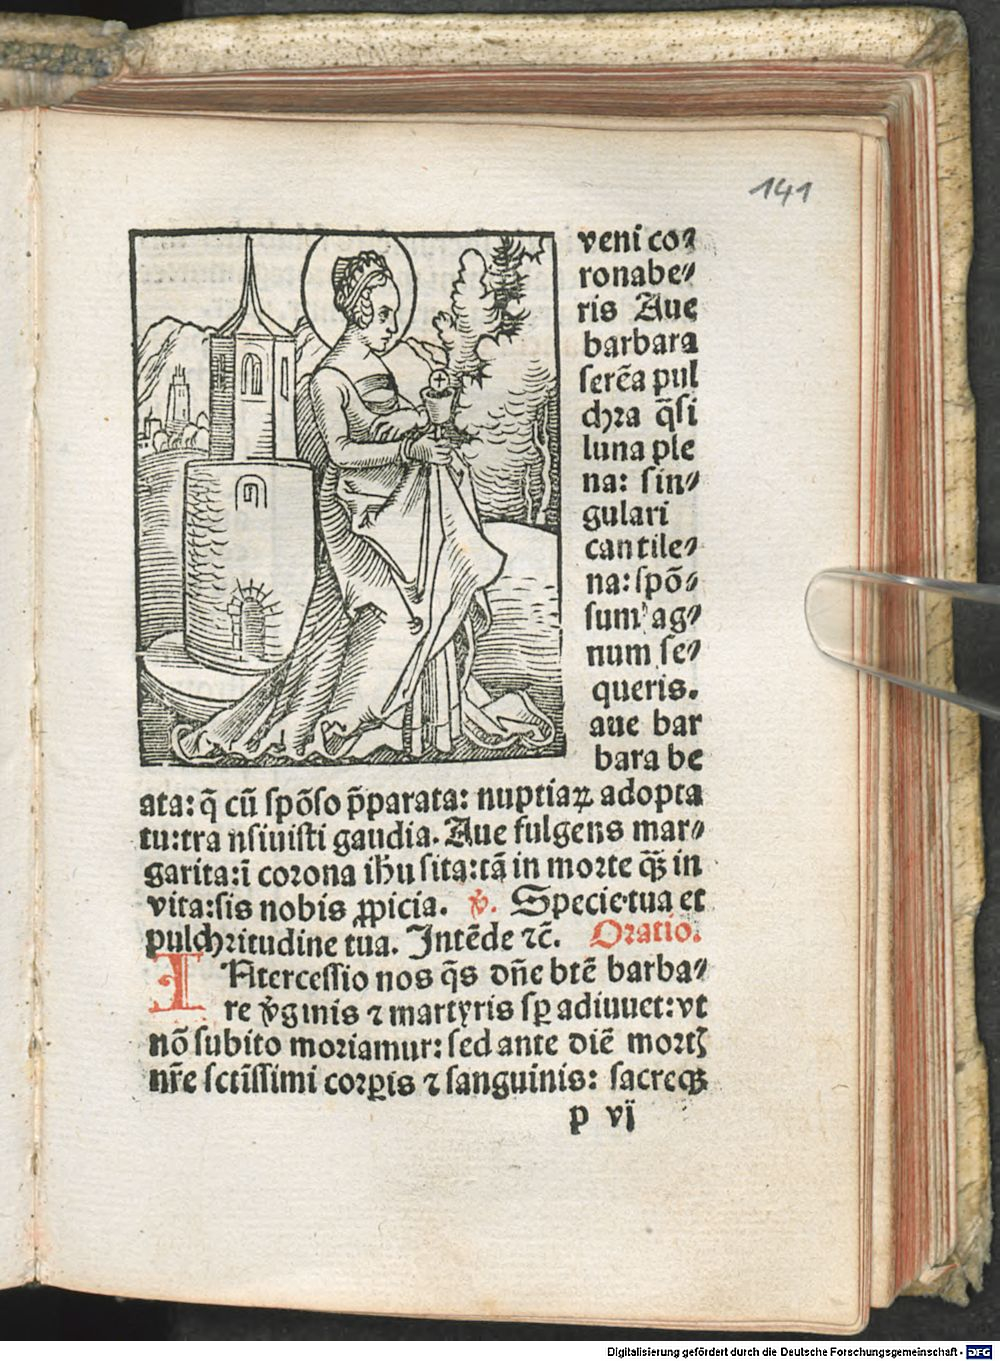 141
veni co⸗
ronabe⸗
ris Aue
barbara
ſerēa pul
chꝛa q̄ſi
luna ple
na: ſin⸗
gulari
cantile⸗
na: ſpō⸗
ſum ag⸗
num ſe⸗
queris.
aue bar
bara be
ata: q̄ cū ſpōſo p̄parata: nuptiaꝝ adopta
tu: tra nſiuiſti gaudia. Aue fulgens mar⸗
garita: ī coꝛona ihu ſita: tā in moꝛte qꝫ in
vita: ſis nobis ꝓpicia. ℣. Specie tua et
pulchꝛitudine tua. Intēde ⁊c̄. Oꝛatio.
INterceſſio nos q̄s dn̄e btē barba⸗
re v̄ginis ⁊ martyris ſꝑ adiuuet: vt
nō ſubito moꝛiamur: ſed ante diē moꝛtꝭ
nr̄e ſctiſſimi coꝛꝑis ⁊ ſanguinis: ſacreqꝫ
p vj
Digitalisierung gefördert durch die Deutsche Forschungsgemeinschaft - DFG